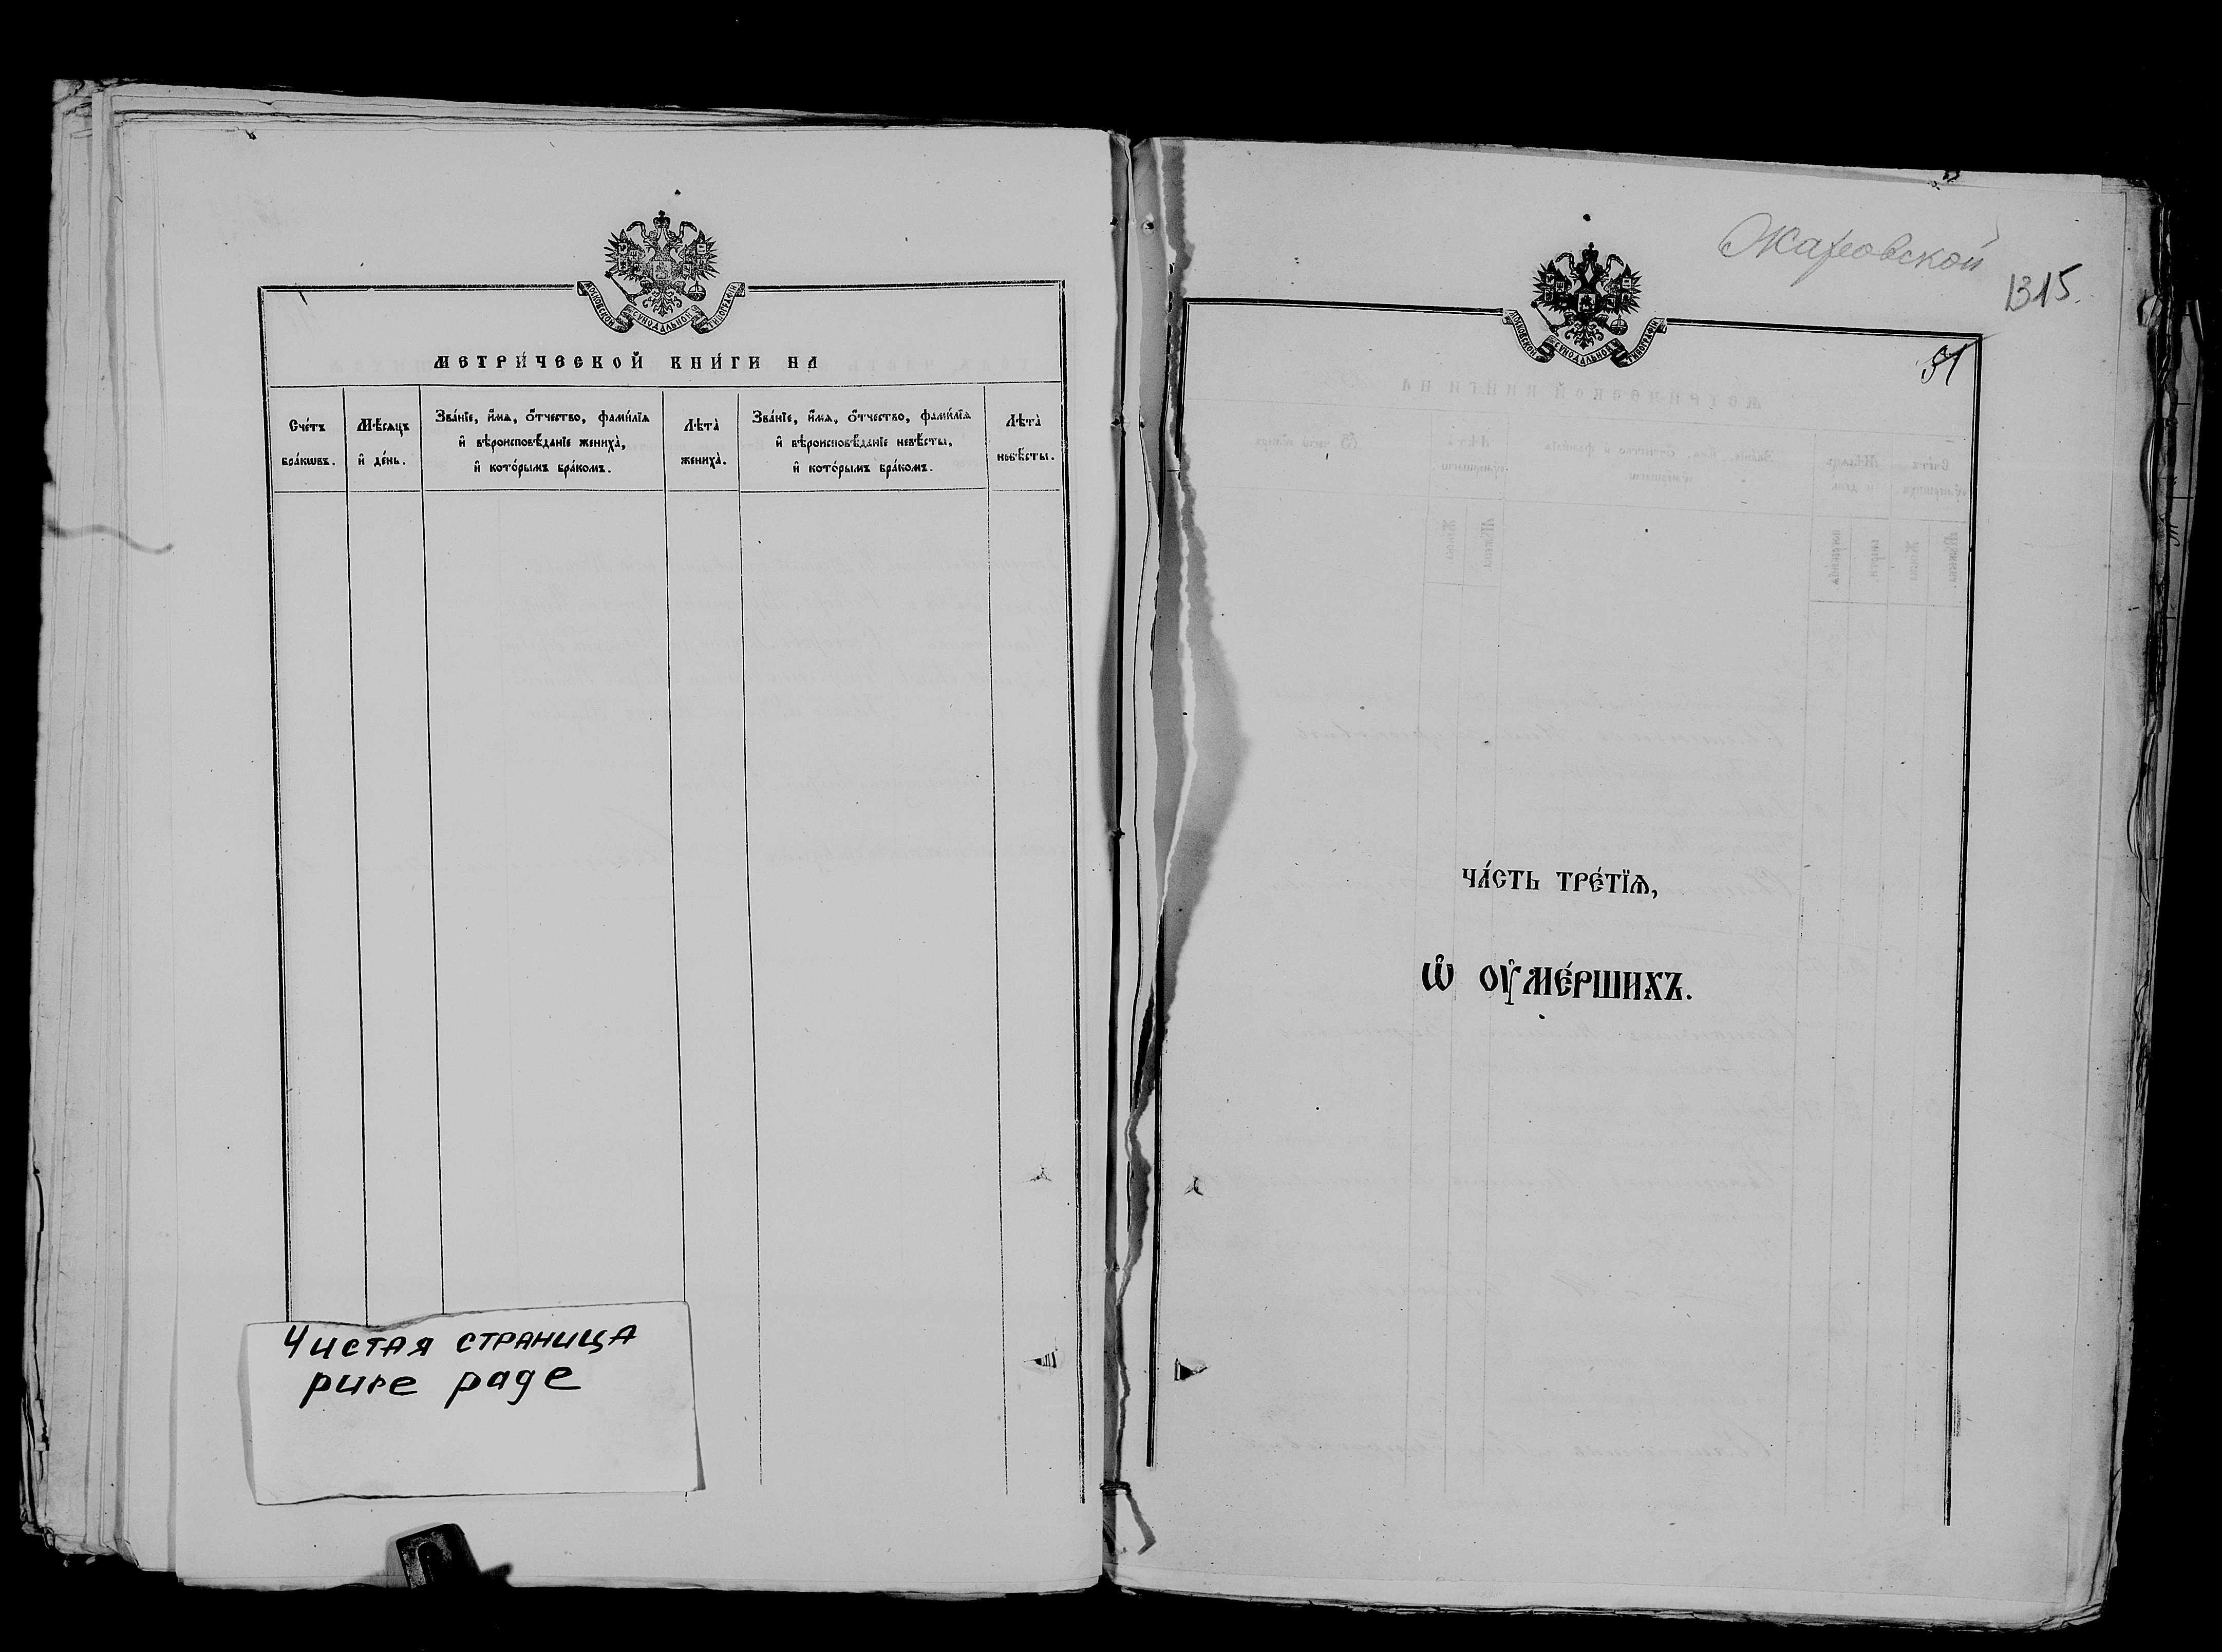 МОСКОВСКОЙ СѴНОДАЛЬНОЙ ТИПОГРАФІИ
МЕТРИ́ЧЕСКОЙ КНИ́ГИ НА
Сче́тъ бра́кѡвъ.
Мѣ́сяцъ и҆ де́нь.
Зва́нїе, и҆́мѧ, ѻ҆́тчество, фами́лїѧ
и҆ вѣроисповѣ́данїе жениха̀,
и҆ кото́рымъ бра́комъ.
Лѣта̀ жениха̀.
Зва́нїе, и҆́мѧ, ѻ҆́тчество, фами́лїѧ
и҆ вѣроисповѣ́данїе невѣ́сты,
и҆ кото́рымъ бра́комъ.
Лѣта̀ невѣ́сты.
Чистая страница
pure page
1315.
МОСКОВСКОЙ СѴНОДАЛЬНОЙ ТИПОГРАФІИ
51
ЧА́СТЬ ТРЕ́ТЇѦ,
Ѡ҆ ОУ҆МЕ́РШИХЪ.